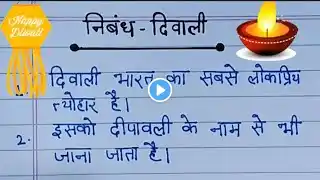 Happy
Diwali
निबंध - दिवाली
दिवाली भारत का सबसे लोकप्रिय
त्योहार है।
2. इसको दीपावली के नाम से भी
जाना जाता है।